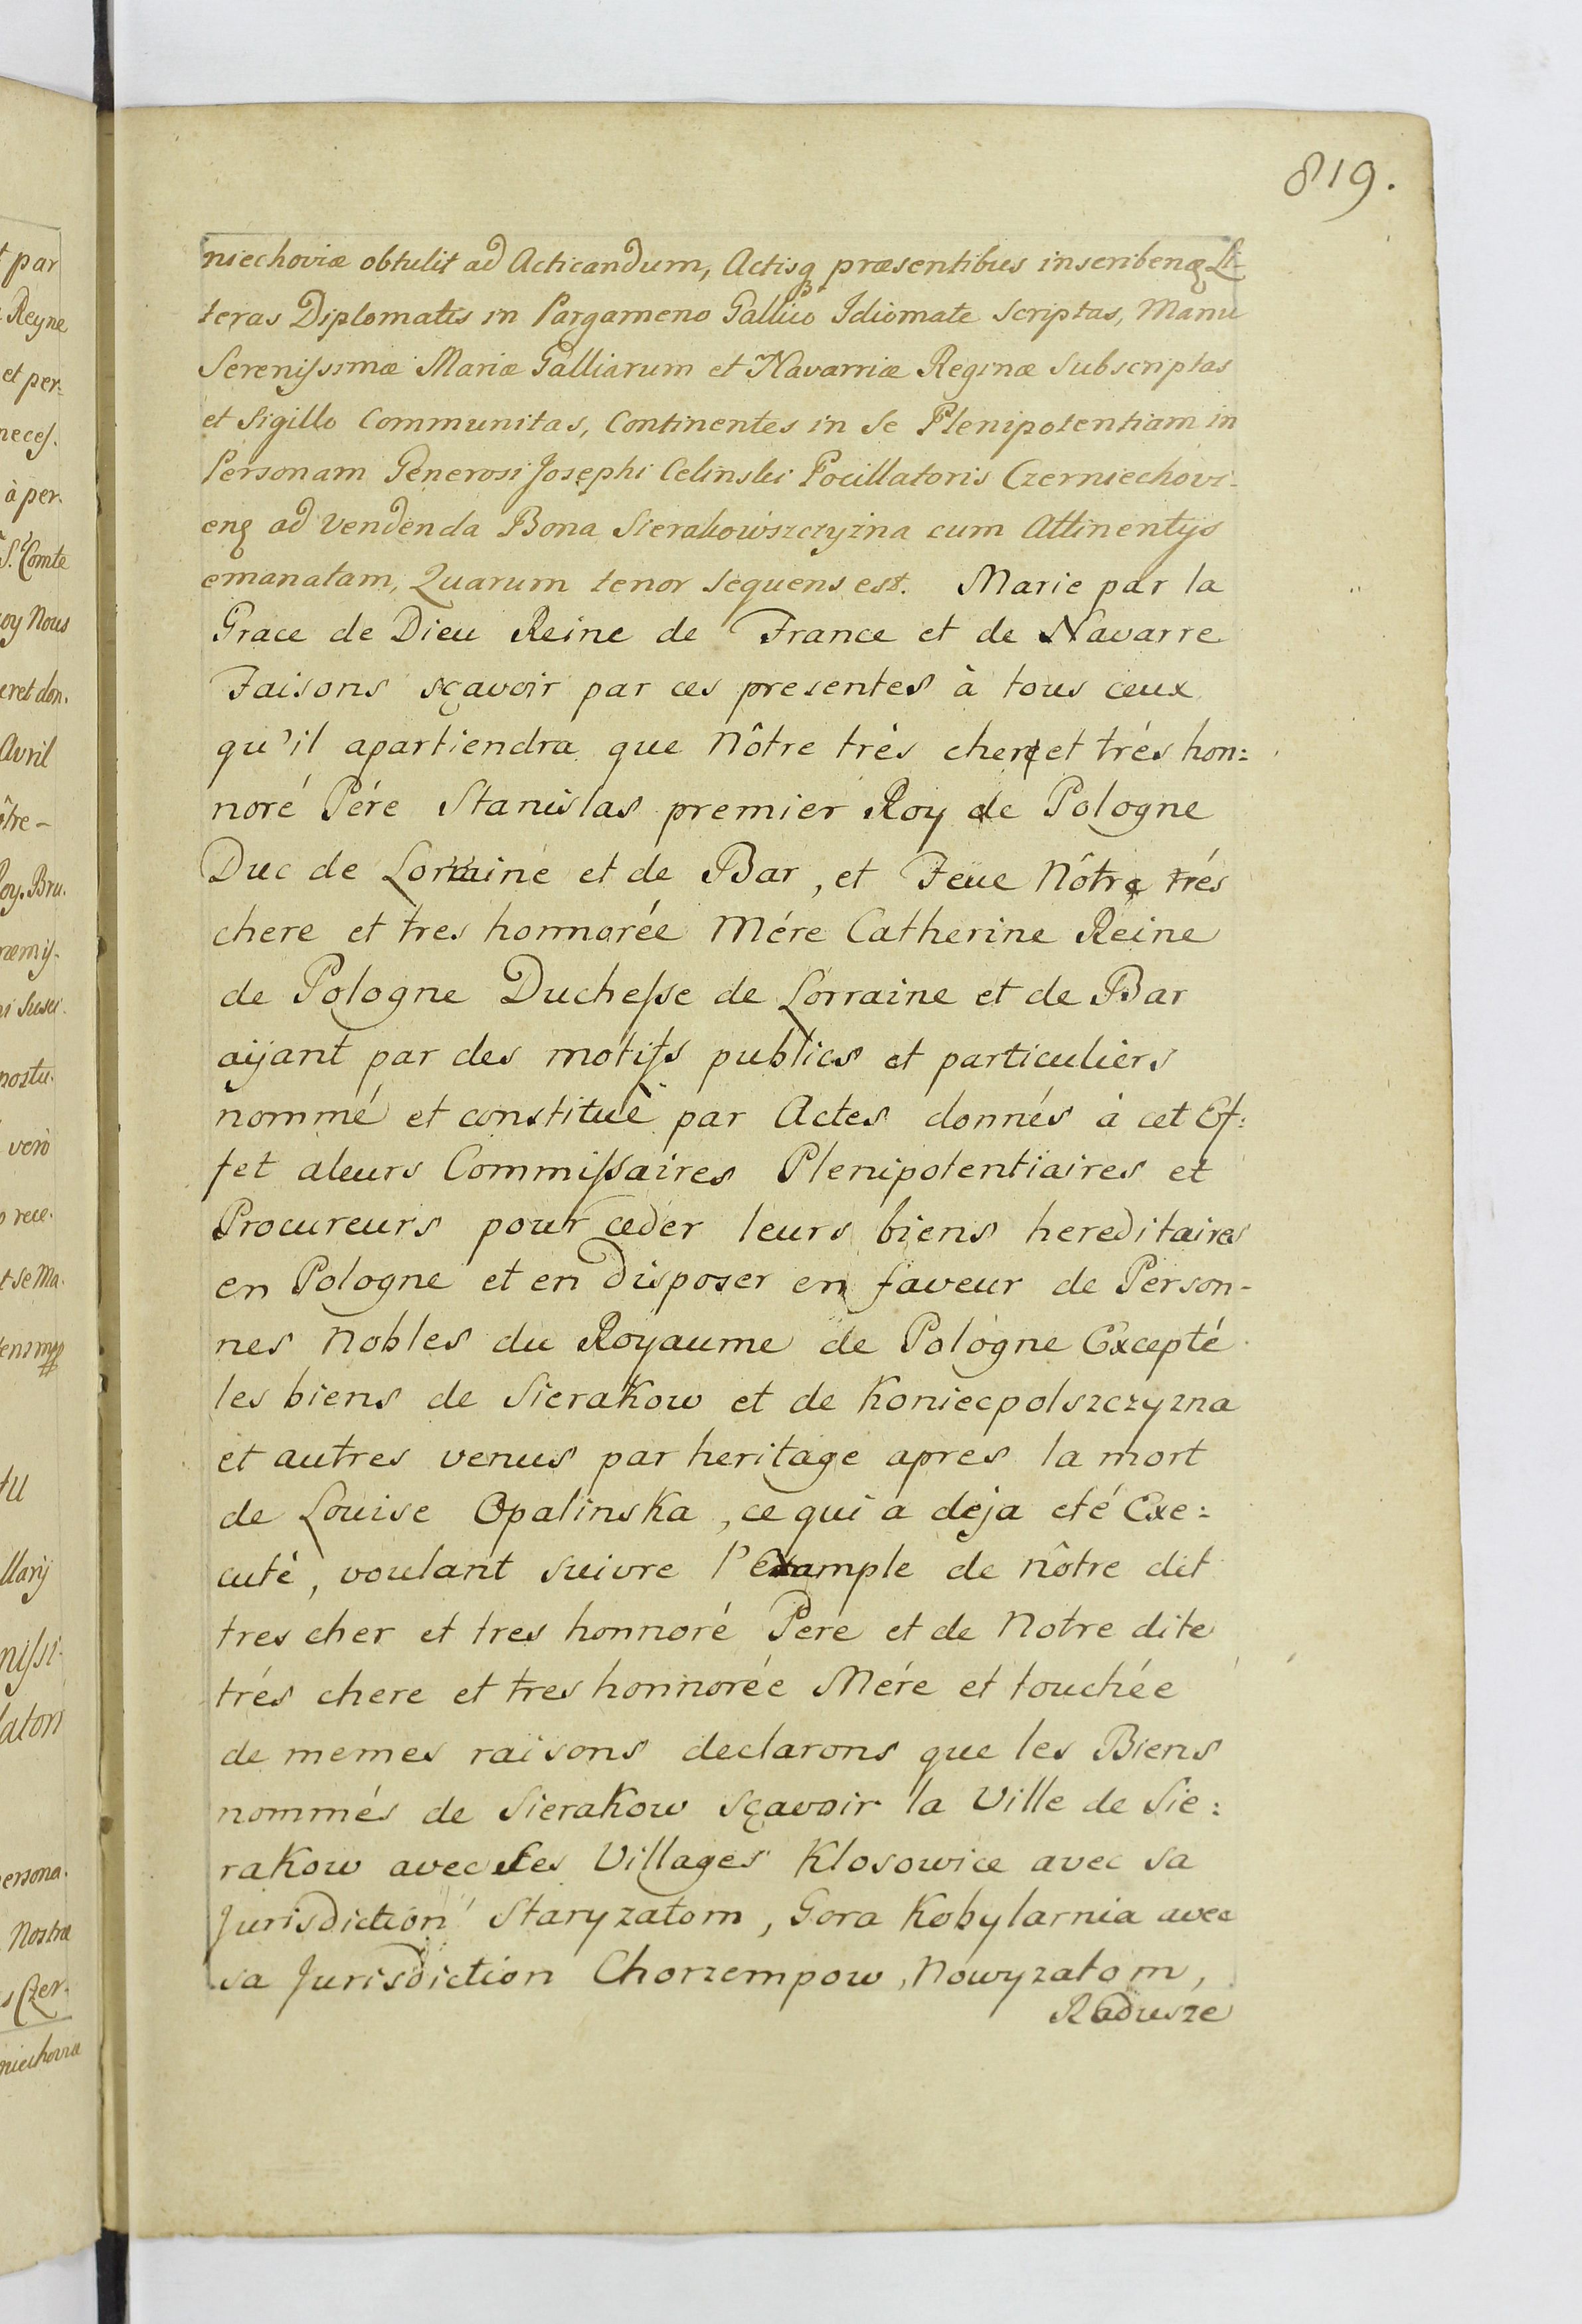 819.
niechoviæ obtulit ad Acticandum, Actisq præsentibus inscribenḡ Li-
teras Diplomatis in Pargameno Gallico Idiomate Scriptas, Manu
Serenissimæ Mariæ Galliarum et Navarriæ Reginæ Subscriptas
et Sigillo Communitas, Continentes in Se Plenipotentiam in
Personam Generosi Josephi Celinski Pocillatoris Czerniechovi-
enq ad Vendenda Bona Sierakowszczyzna cum Attinentijs
emanatam, Quarum tenor sequens est. Marie par la
Grace de Dieu Reine de France et de Navarre
Faisons sçavoir par ces presentes à tous ceux
qu'il apartiendra que Nôtre très cher et trés hon:
noré Pére Stanislas premier Roy de Pologne
Duc de Lorraine et de Bar, et Feue Nôtre trés
chere et tres honnorée Mére Catherine Reine
de Pologne Duchesse de Lorraine et de Bar
aijant par des motifs publics et particuliers
nommé et constituè par Actes donnés à cet Ef:
fet aleurs Commissaires Plenipotentiaires et
Procureurs pour ceder leurs biens hereditaires
en Pologne et en disposer en faveur de Person-
nes Nobles du Royaume de Pologne Excepté
les biens de Sierakow et de Koniecpolszczyzna
et autres venus par heritage apres la mort
de Louise Opalinska, ce qui a deja eté Exe:
cuté, voulant suivre l'Example de nôtre dit
tres cher et tres honnoré Pere et de Notre dite
trés chere et tres honnorée Mére et touchée
de memes raisons declarons que les Biens
nommés de Sierakow sçavoir la Ville de Sie:
rakow avec Ses Villages Klosowice avec sa
Jurisdiction Staryzatom, Gora Kobylarnia avec
sa Jurisdiction Chorzempow, Nowyzatom,
Radusze